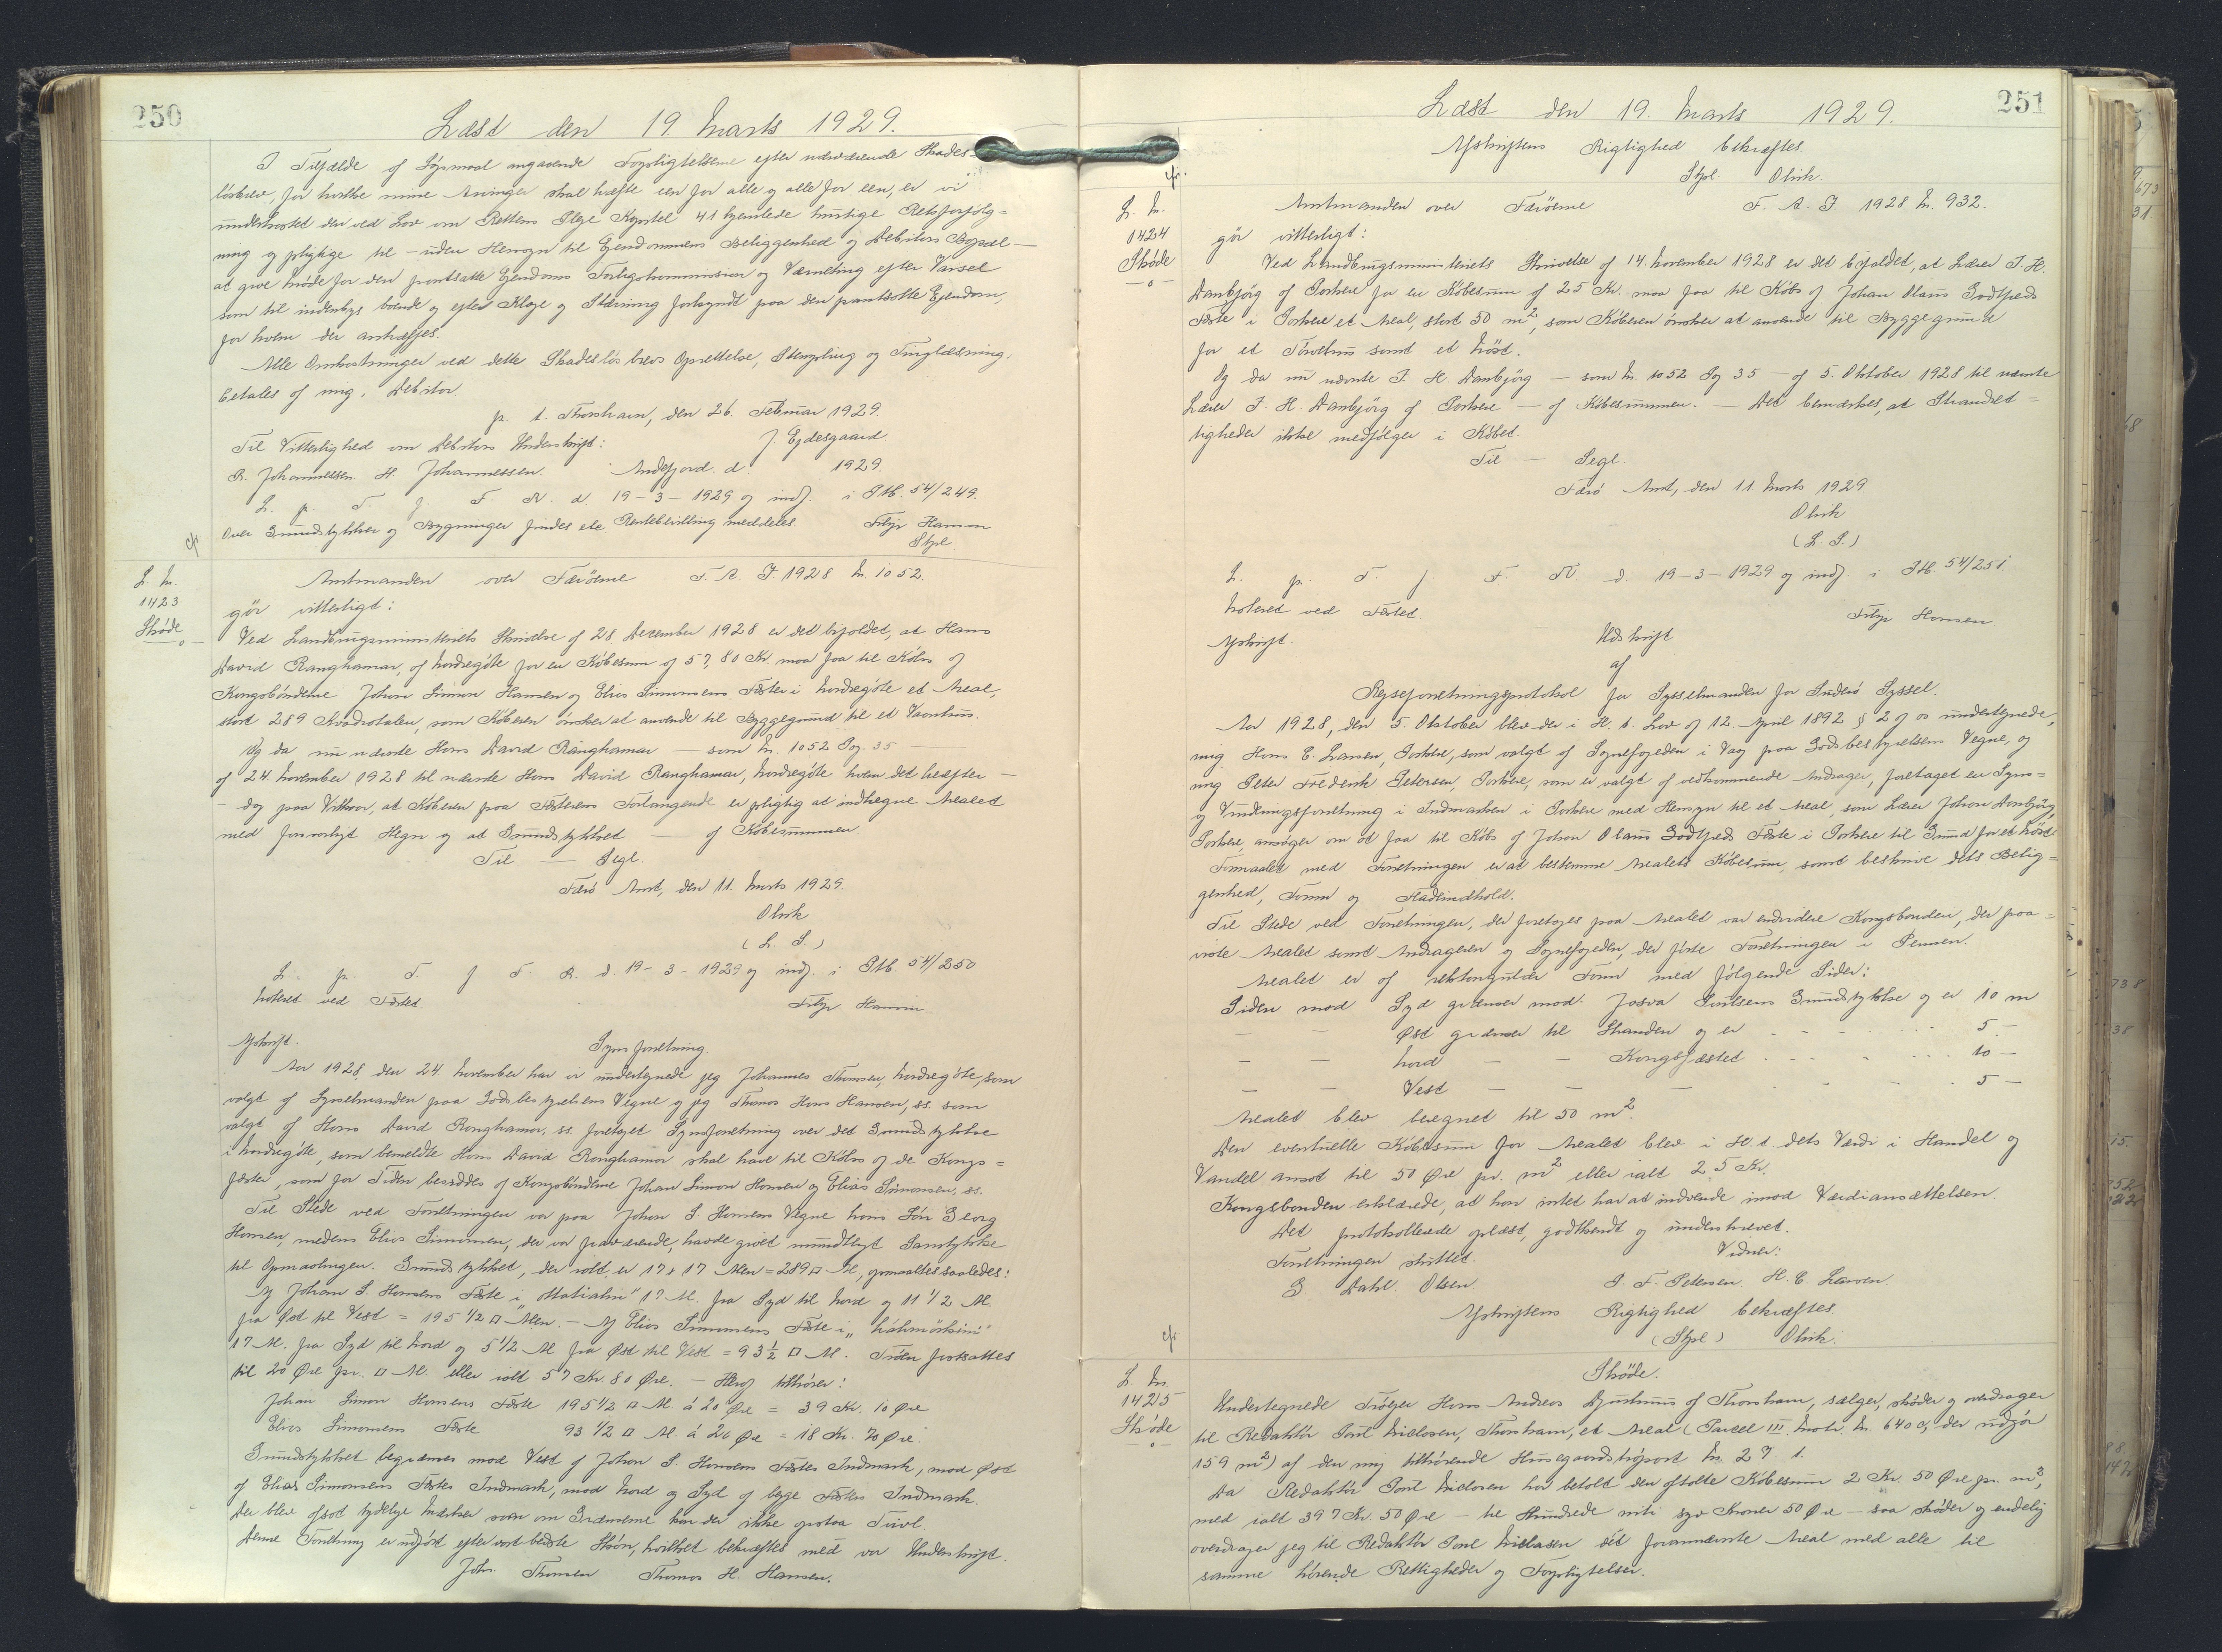 250
Læst den 19. Marts 1929.
I Tilfælde af Søgsmaal angaaende Forpligtelserne efter nærværende Skades-
løsbrev, for hvilke mine Arvinger skal hæfte een for alle og alle for een, er vi
underkastet den ved Lov om Rettens Pleje Kapitel 41 hjemlede hurtige Retsforfølg=
ning og pligtige til – uden Hensyn til Ejendommens Beliggenhed og Debitors Bopæl –
at give Møde for den pantsatte Ejendoms Forligskommission og Værneting efter Varsel
som til indenbys boende og efter Klage og Stævning forkyndt paa den pantsatte Ejendom,
for hvem der antræffes.
Alle Omkostninger ved dette Skadesløsbrevs Oprettelse, Stempling og Tinglæsning,
betales af mig, Debitor.
p. t. Thorshavn, den 26. Februar 1929.
Til Vitterlighed om Debitors Underskrift: J. Ejdesgaard.
Johannessen H. Johannessen. Andefjord. d. 1929.
L. p. T. f. F. R. d. 19-3-1929 og indf. i Ptb. 54/249.
Over Grundstykker og Bygninger findes ete meddeles. Filip Hansen
Stpl.
cfr
L. Nr.
1423
Skøde
—o—
Amtmanden over Færöerne F. A. J. 1928 Nr. 1052.
gör vitterligt:
Ved Landbrugsministeriets Skrivelse af 28 December 1928 er det bifaldet, at Hans
David Ranghamar, af Nordregöte for en Købesum af 57,80 Kr. maa faa til Købs af
Kongsbönderne Johan Simon Hansen og Elias Simonsens Fæste i Nordregöte et Areal,
stort 289 Kvadratalen, som Køberen ønsker at anvende til Byggegrund til et Vaanhus.
Og da nu nævnte Hans David Ranghamar — som Nr. 1052 Pag. 35 —
af 24. November 1928 til nævnte Hans David Ranghamar, Nordregöte hvem det hæfter —
– dog paa Vilkaar, at Køberen paa Fæsterens Forlangende er pligtig at indhegne Arealet
med forsvarligt Hegn og at Grundstykket — af Købesummen.
Til — Segl.
Færö Amt, den 11. Marts 1929.
Olrik
(L. S.)
L. p. T. f F. R. d. 19-3-1929 og indf. i Ptb. 54/250
Noteret ved Fæstet Filip Hansen.
Afskrift. Synsforretning.
Aar 1928, den 24 November har vi undertegnede jeg Johannes Thomsen, Nordregöte, som
valgt af Sysselmanden paa Godsbestyrelsens Vegne og jeg Thomas Hans Hansen, ss. som
valgt af Hans David Ranghamar, ss. foretaget Synsforretning over det Grundstykke
i Nordregöte, som bemeldte Hans David Ranghamar skal have til Købs af de Kongs=
fæster, som for Tiden besiddes af Kongsbönderne Johan Simon Hansen og Elias Simonsen, ss.
Til Stede ved Forretningen var paa Johan S. Hansens Vegne hans Sön Georg
Hansen, medens Elias Simonsen, der var fraværende, havde givet mundtligt Samtykke
til Opmaalingen. Grundstykket, der ialt er 17 x 17 Alen = 289 □ Al., opmaaltes saaledes:
Af Johan S. Hansens Fæste i 17 Al. fra Syd til Nord og 11 1/2 Al.
fra Øst til Vest = 195 1/2 □ Alen. – Af Elias Simonsens Fæste i
17 Al. fra Syd til Nord og 5 1/2 Al fra Øst til Vest = 93 1/2 □ Al. Troen fastsattes
til 20 Øre pr. □ Al. eller ialt 57 Kr. 80 Øre. – Heraf tilhører:
Johan Simon Hansens Fæste 195 1/2 □ Al. á 20 Øre = 39 Kr. 10 Øre
Elias Simonsens Fæste 93 1/2 □ Al. á 20 Øre = 18 Kr. 70 Øre.
Grundstykket begrænses mod Vest af Johan S. Hansens Fæstes Indmark, mod Øst
af Elias Simonsens Fæstes Indmark, mod Nord og Syd af begge Fæsters Indmark.
Der blev afsat tydelige Mærker saa om Grænserne kan der ikke opstaa Tvivl.
Denne Forretning er udført efter vort bedste Skøn, hvilket bekræftes med vor Underskrift.
Johs. Thomsen Thomas H. Hansen.
251
Læst den 19. Marts 1929.
Afskriftens Rigtighed bekræftes.
Stpl. Olrik.
cfr.
L. Nr.
1424
Skøde
—o—
Amtmanden over Færöerne F. A. J. 1928 Nr. 932.
gör vitterligt:
Ved Landbrugsministeriets Skrivelse af 14. November 1928 er det bifaldet, at Lærer J. H.
Dambjörg af Porkere for en Købesum af 25 Kr. maa faa til Købs af Johan Olaus Godtfreds
Fæste i Porkere et Areal, stort 50 m², som Køberen ønsker at anvende til Byggegrund
for et samt et Nöst.
Og da nu nævnte J. H. Dambjörg — som Nr. 1052 Pag 35 — af 5. Oktober 1928 til nævnte
Lærer J. H. Dambjörg af Porkere — af Købesummen. — Det bemærkes, at Strandret=
tigheder ikke medfølger i Købet.
Til — Segl.
Færö Amt, den 11. Marts 1929.
Olrik
(L. S.)
L. p. T. f. F. R. d. 19-3-1929 og indf. i Ptb. 54/251.
Noteret ved Fæstet Filip Hansen
Afskrift. Udskrift
af
Rejseforretningsprotokol for Sysselmanden for Suderö Syssel.
Aar 1928, den 5. Oktober blev der i H. t. Lov af 12. April 1892 § 2 af os undertegnede,
mig Hans E. Larsen, Porkere, som valgt af Synefogeden i Vaag paa Godsbestyrelsens Vegne, og
mig Peter Frederik Petersen, Porkere, som er valgt af vedkommende Andrager, foretaget en Syns=
og Vurderingsforretning i Indmarken i Porkere med Hensyn til et Areal, som Lærer Johan Dambjörg,
Porkere, ansøger om at faa til Købs af Johan Olaus Godtfreds Fæste i Porkere til Grund for et Nöst.
Formaalet med Forretningen er at bestemme Arealets Købesum, samt beskrive dets Belig=
genhed, Form og Fladeindhold.
Til Stede ved Forretningen, der foretoges paa Arealet var endvidere Kongsbonden, der paa=
viste Arealet samt Andrageren og Synefogeden, der førte Forretningen i Pennen.
Arealet er af rektangulær Form med følgende Sider:
Siden mod Syd grænser mod Josva Poulsens Grundstykke og er 10 m
— — Øst grænser til Stranden og er 5 –
— — Nord — — Kongsfæstet 10 –
— — Vest — — — 5 –
Arealet blev beregnet til 50 m².
Den eventuelle Købesum for Arealet blev i H. t. dets Værdi i Handel og
Vandel ansat til 50 Øre pr. m² eller ialt 25 Kr.
Kongsbonden erklærede, at han intet har at indvende imod Værdiansættelsen.
Det protokollerede oplæst, godkendt og underskrevet.
Forretningen sluttet. Vidner:
G. Dahl Olsen. P. F. Petersen. H. E. Larsen
Afskriftens Rigtighed bekræftes.
(Stpl.) Olrik.
cfr
L. Nr.
1425
Skøde
—o—
Skøde.
Undertegnede Hans Andreas af Thorshavn, sælger, skøder og overdrager
til Redaktör Poul Niclasen, Thorshavn, et Areal (Parcel III Matr. Nr. 640 c, der udgör
159 m²) af den mig tilhørende Nr. 27 t.
Da Redaktör Poul Niclasen har betalt den aftalte Købesum 2 Kr. 50 Øre pr. m²,
med ialt 397 Kr. 50 Øre – tre Hundrede niti syv Kroner 50 Øre – saa skøder og endelig
overdrager jeg til Redaktör Poul Niclasen det forannævnte Areal med alle til
samme hørende Rettigheder og Forpligtelser.